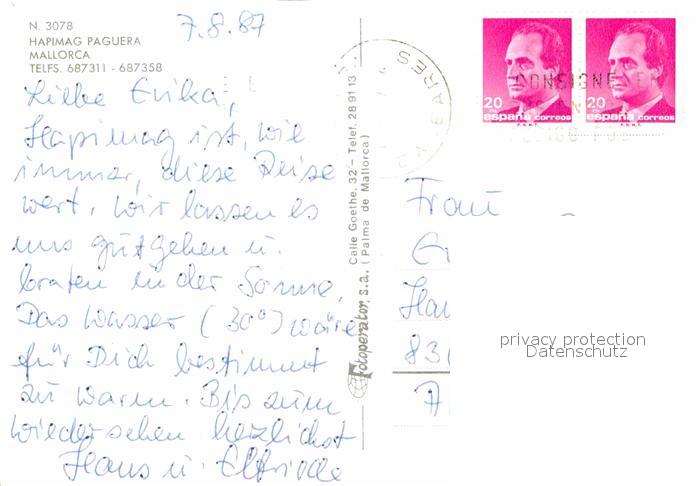 N. 3078
HAPIMAG PAGUERA
MALLORCA
TELFS. 687311 - 687358
7.8.87
Liebe Erika,
Hapimag ist, wie
immer, diese Reise
wert. Wir lassen es
uns gutgehen u.
braten in der Sonne.
Das Wasser (30°) wäre
für Dich bestimmt
zu warm. Bis zum
wiedersehen herzlichst
Hans u. Elfriede
Fotoperator, s.a. Calle Goethe, 32 - Telef. 28 91 13
(Palma de Mallorca)
BALEARES
CONSIGNE E
20 españa correos
F.N.M.T.
20 españa correos
F.N.M.T.
Frau
831
privacy protection
Datenschutz